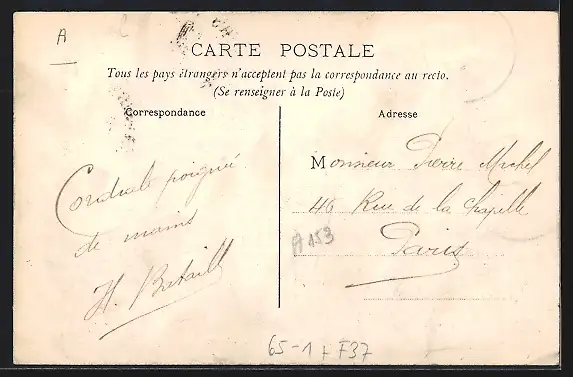 A
CARTE POSTALE
Tous les pays étrangers n'acceptent pas la correspondance au recto.
(Se renseigner à la Poste)
Correspondance
Cordiale poignée
de mains
H. Bataille
Adresse
Monsieur Pierre Michel
46 Rue de la Chapelle
Paris
A153
65-1+F37